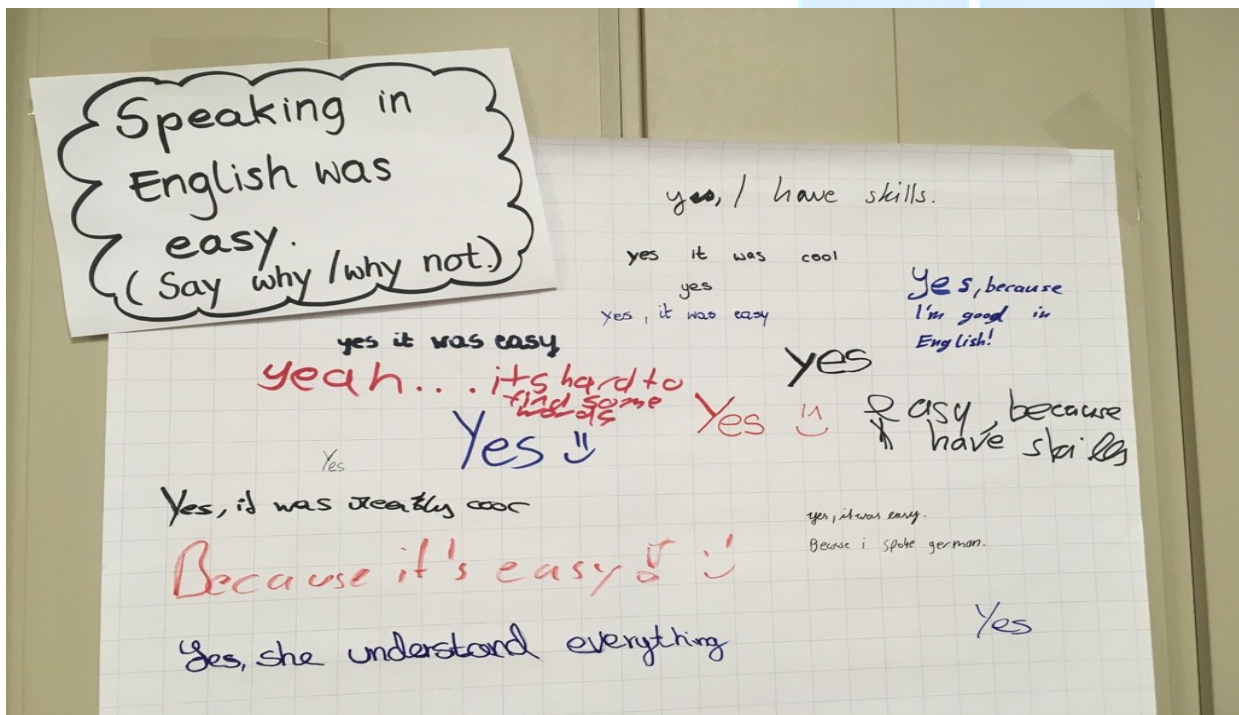 Speaking in
English was
easy.
(Say why/why not.)
yes, I have skills.
yes it was cool
yes
yes, it was easy
Yes, because
I'm good in
English!
yes it was easy
yes
yeah... its hard to
find some
words
Yes :)
Easy, because
I have skills
Yes :)
Yes
Yes, it was really cool
yes, it was easy.
Becouse i spoke german.
Because it's easy! :)
Yes
Yes, she understand everything